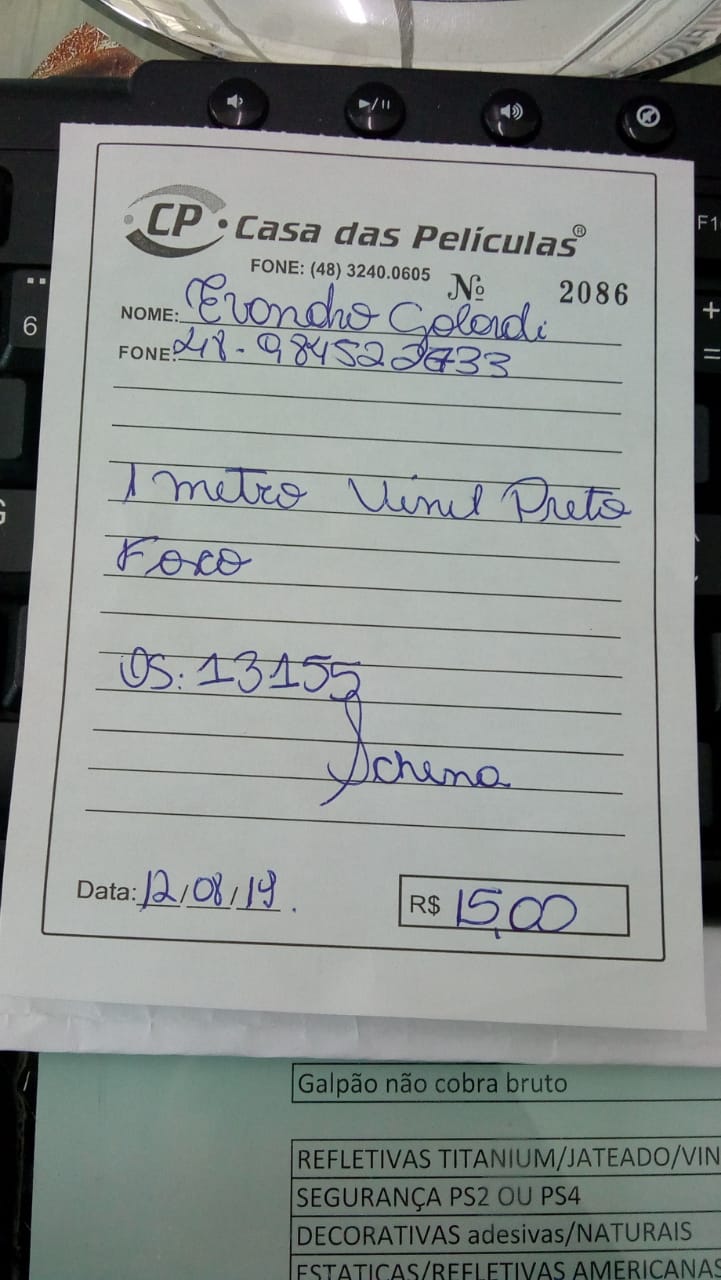 CP • Casa das Películas®
FONE: (48) 3240.0605 Nº 2086
NOME: Evandro Golardi
FONE: 48-984522733
1 metro Vinil Preto
Foco
OS: 13155
Schena
Data: 12/08/19.
R$ 15,00
Galpão não cobra bruto
REFLETIVAS TITANIUM/JATEADO/VIN
SEGURANÇA PS2 OU PS4
DECORATIVAS adesivas/NATURAIS
ESTATICAS/REFLETIVAS AMERICANAS
6
F1